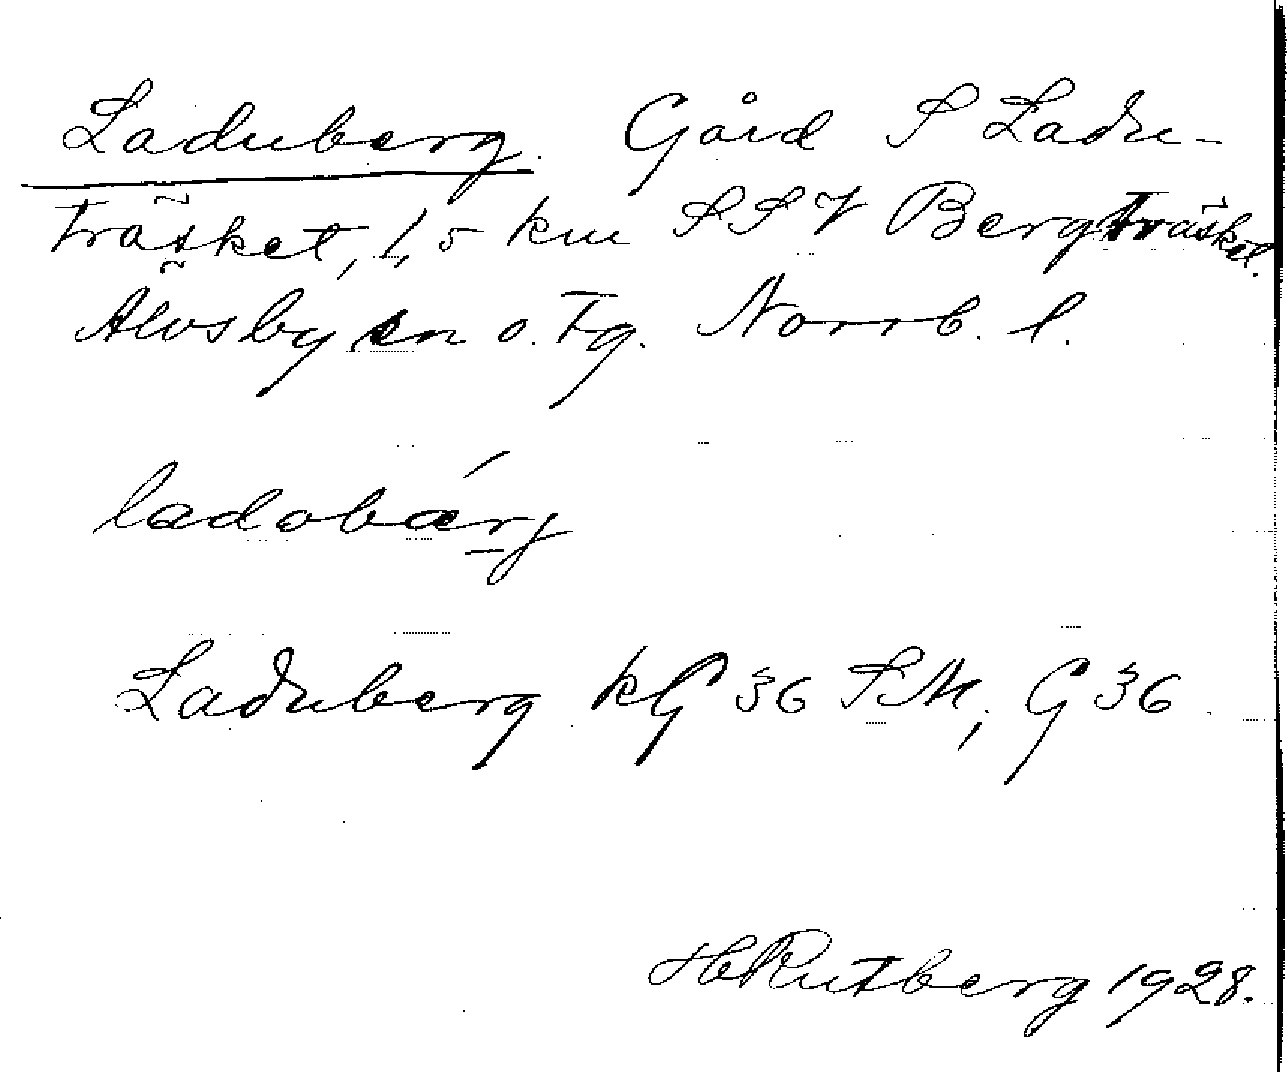 Laduberg. Gård S Ladu-
träsket, 1,5 km SSV Bergträsket.
Älvsby sn o. tg. Norrb. l.
ladobærg
Laduberg kG 36 SM, G 36
H Rutberg 1928.